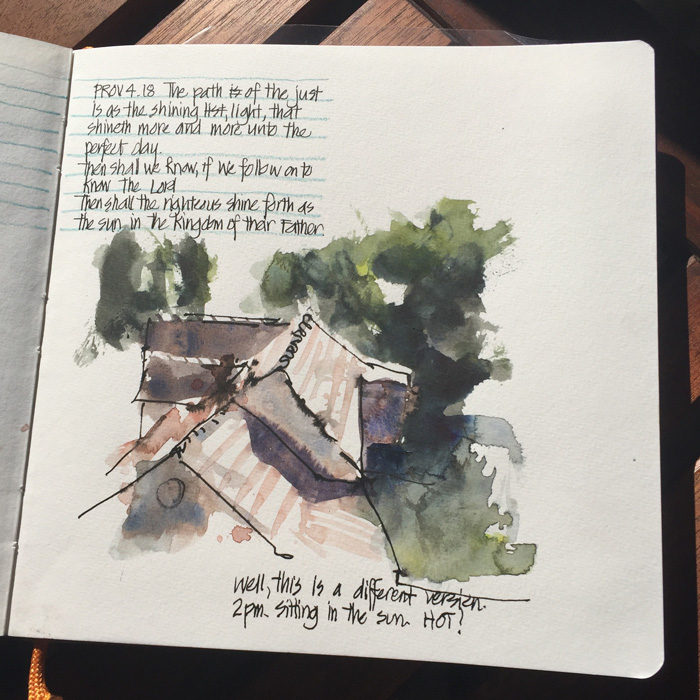 PROV 4.18 The path is of the just
is as the shining light, that
shineth more and more unto the
perfect day.
Then shall we know, if we follow on to
know the Lord
Then shall the righteous shine forth as
the sun in the kingdom of their Father.
Well, this is a different version.
2pm. sitting in the sun. HOT!